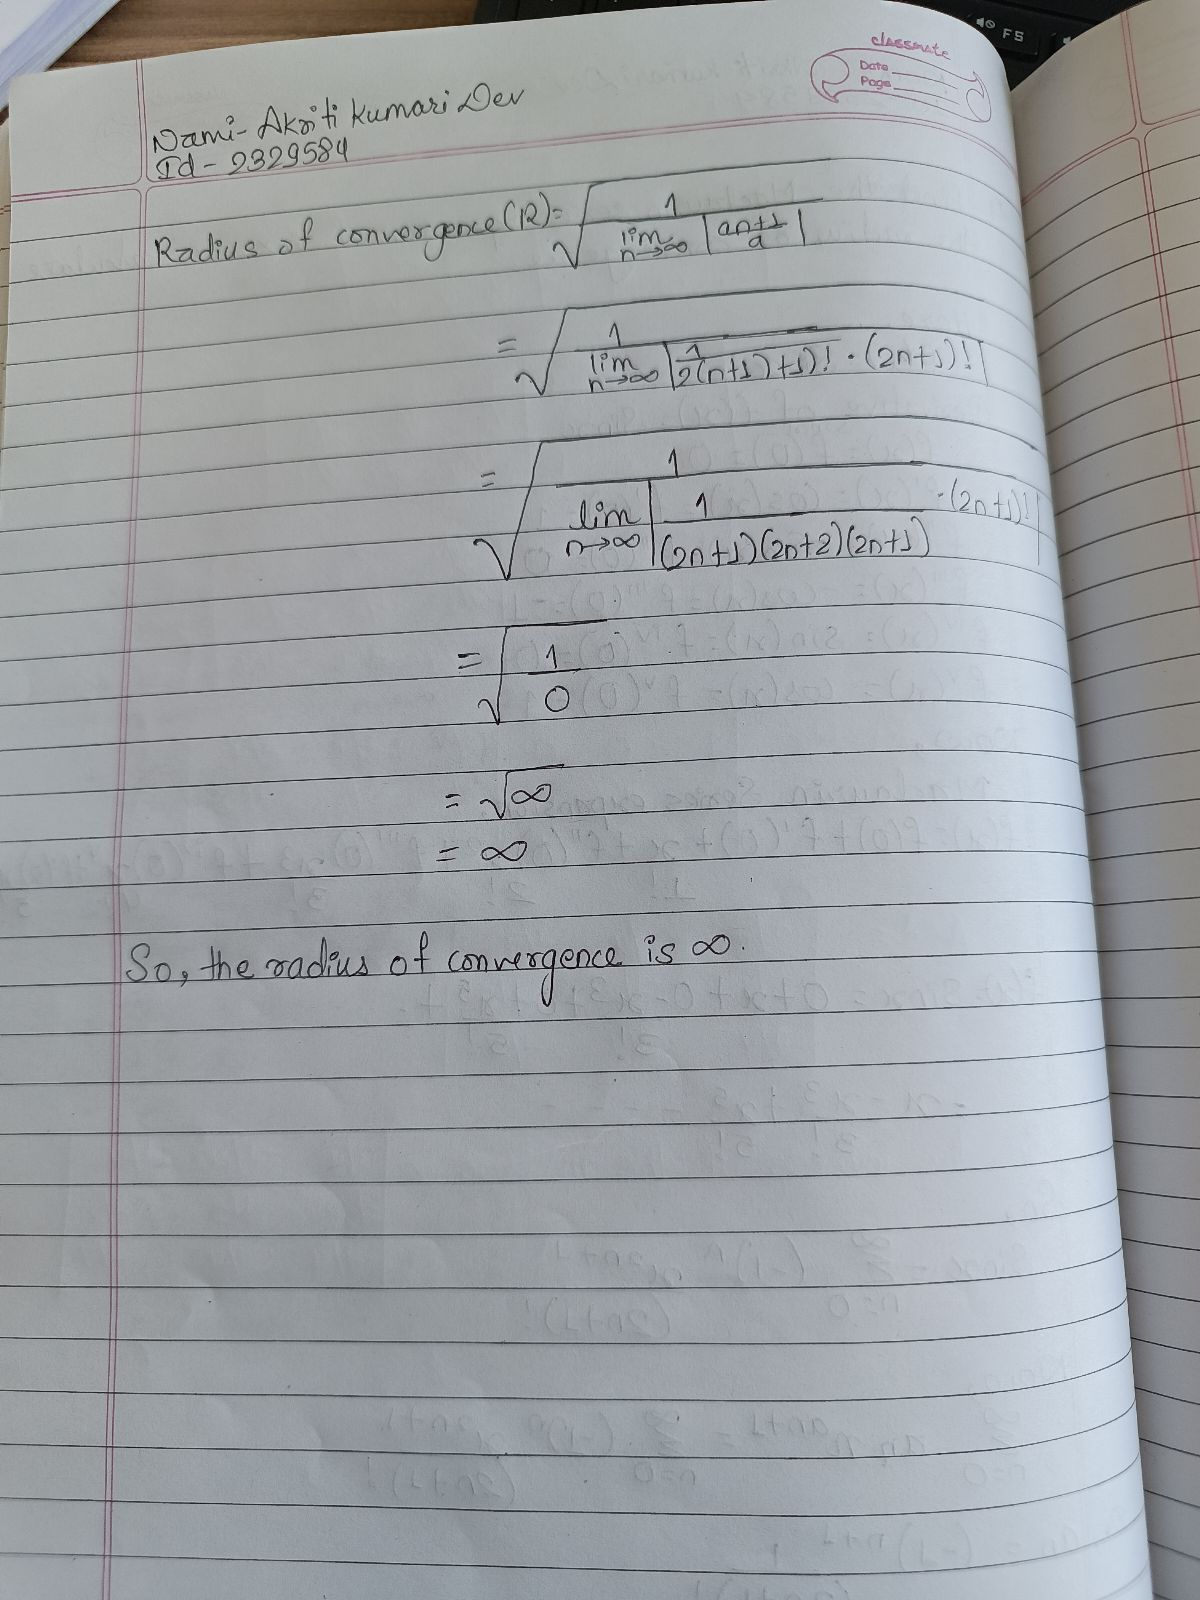 F5
classmate
Date
Page
Nami- Akriti Kumari Dev
Id - 2329584
Radius of convergence (R) = √(1 / lim n→∞ |an+1 / a|)
= √(1 / lim n→∞ |1 / 2(n+1)+1)! · (2n+1)!|)
= √(1 / lim n→∞ |1 / (2n+1)(2n+2)(2n+1) · (2n+1)!|)
= √(1 / 0)
= √∞
= ∞
So, the radius of convergence is ∞.